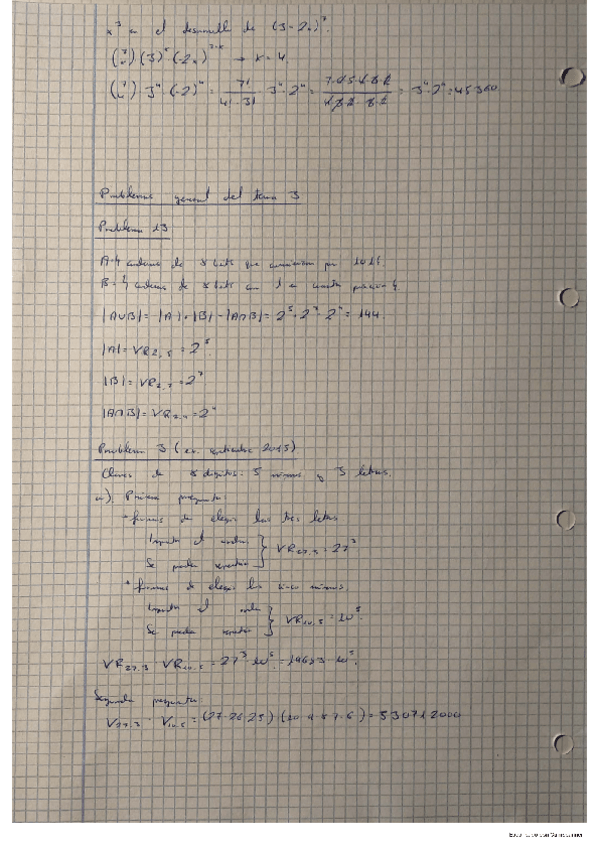 x³ en el desarrollo de (3-2x)⁷.
(7 x) (3)^x (-2x)^7-x → x=4.
(7 4) 3⁴ · (-2)⁴ = 7! / 4! · 3! · 3⁴ · 2⁴ = = 3⁴ · 2⁴ = 45360
Problemas general del tema 3
Problema 13
A = { cadenas de 8 bits que comienzan por 101}.
B = { cadenas de 8 bits con 1 en cuarta posición}.
|A∪B| = |A| + |B| - |A∩B| = 2⁵ + 2⁷ - 2⁴ = 144.
|A| = VR2,5 = 2⁵.
|B| = VR2,7 = 2⁷
|A∩B| = VR2,4 = 2⁴
Problema 3 (ex. septiembre 2015)
Claves de 8 dígitos: 5 números y 3 letras.
a). Primera pregunta:
* formas de elegir las tres letras
Importa el orden
Se pueden repetir } VR27,3 = 27³
* formas de elegir los cinco números.
Importa el orden
Se pueden repetir } VR10,5 = 10⁵.
VR27,3 · VR10,5 = 27³ · 10⁵ = 19683 · 10⁵.
Segunda pregunta:
V27,3 · V10,5 = (27·26·25) · (10·9·8·7·6) = 530712000